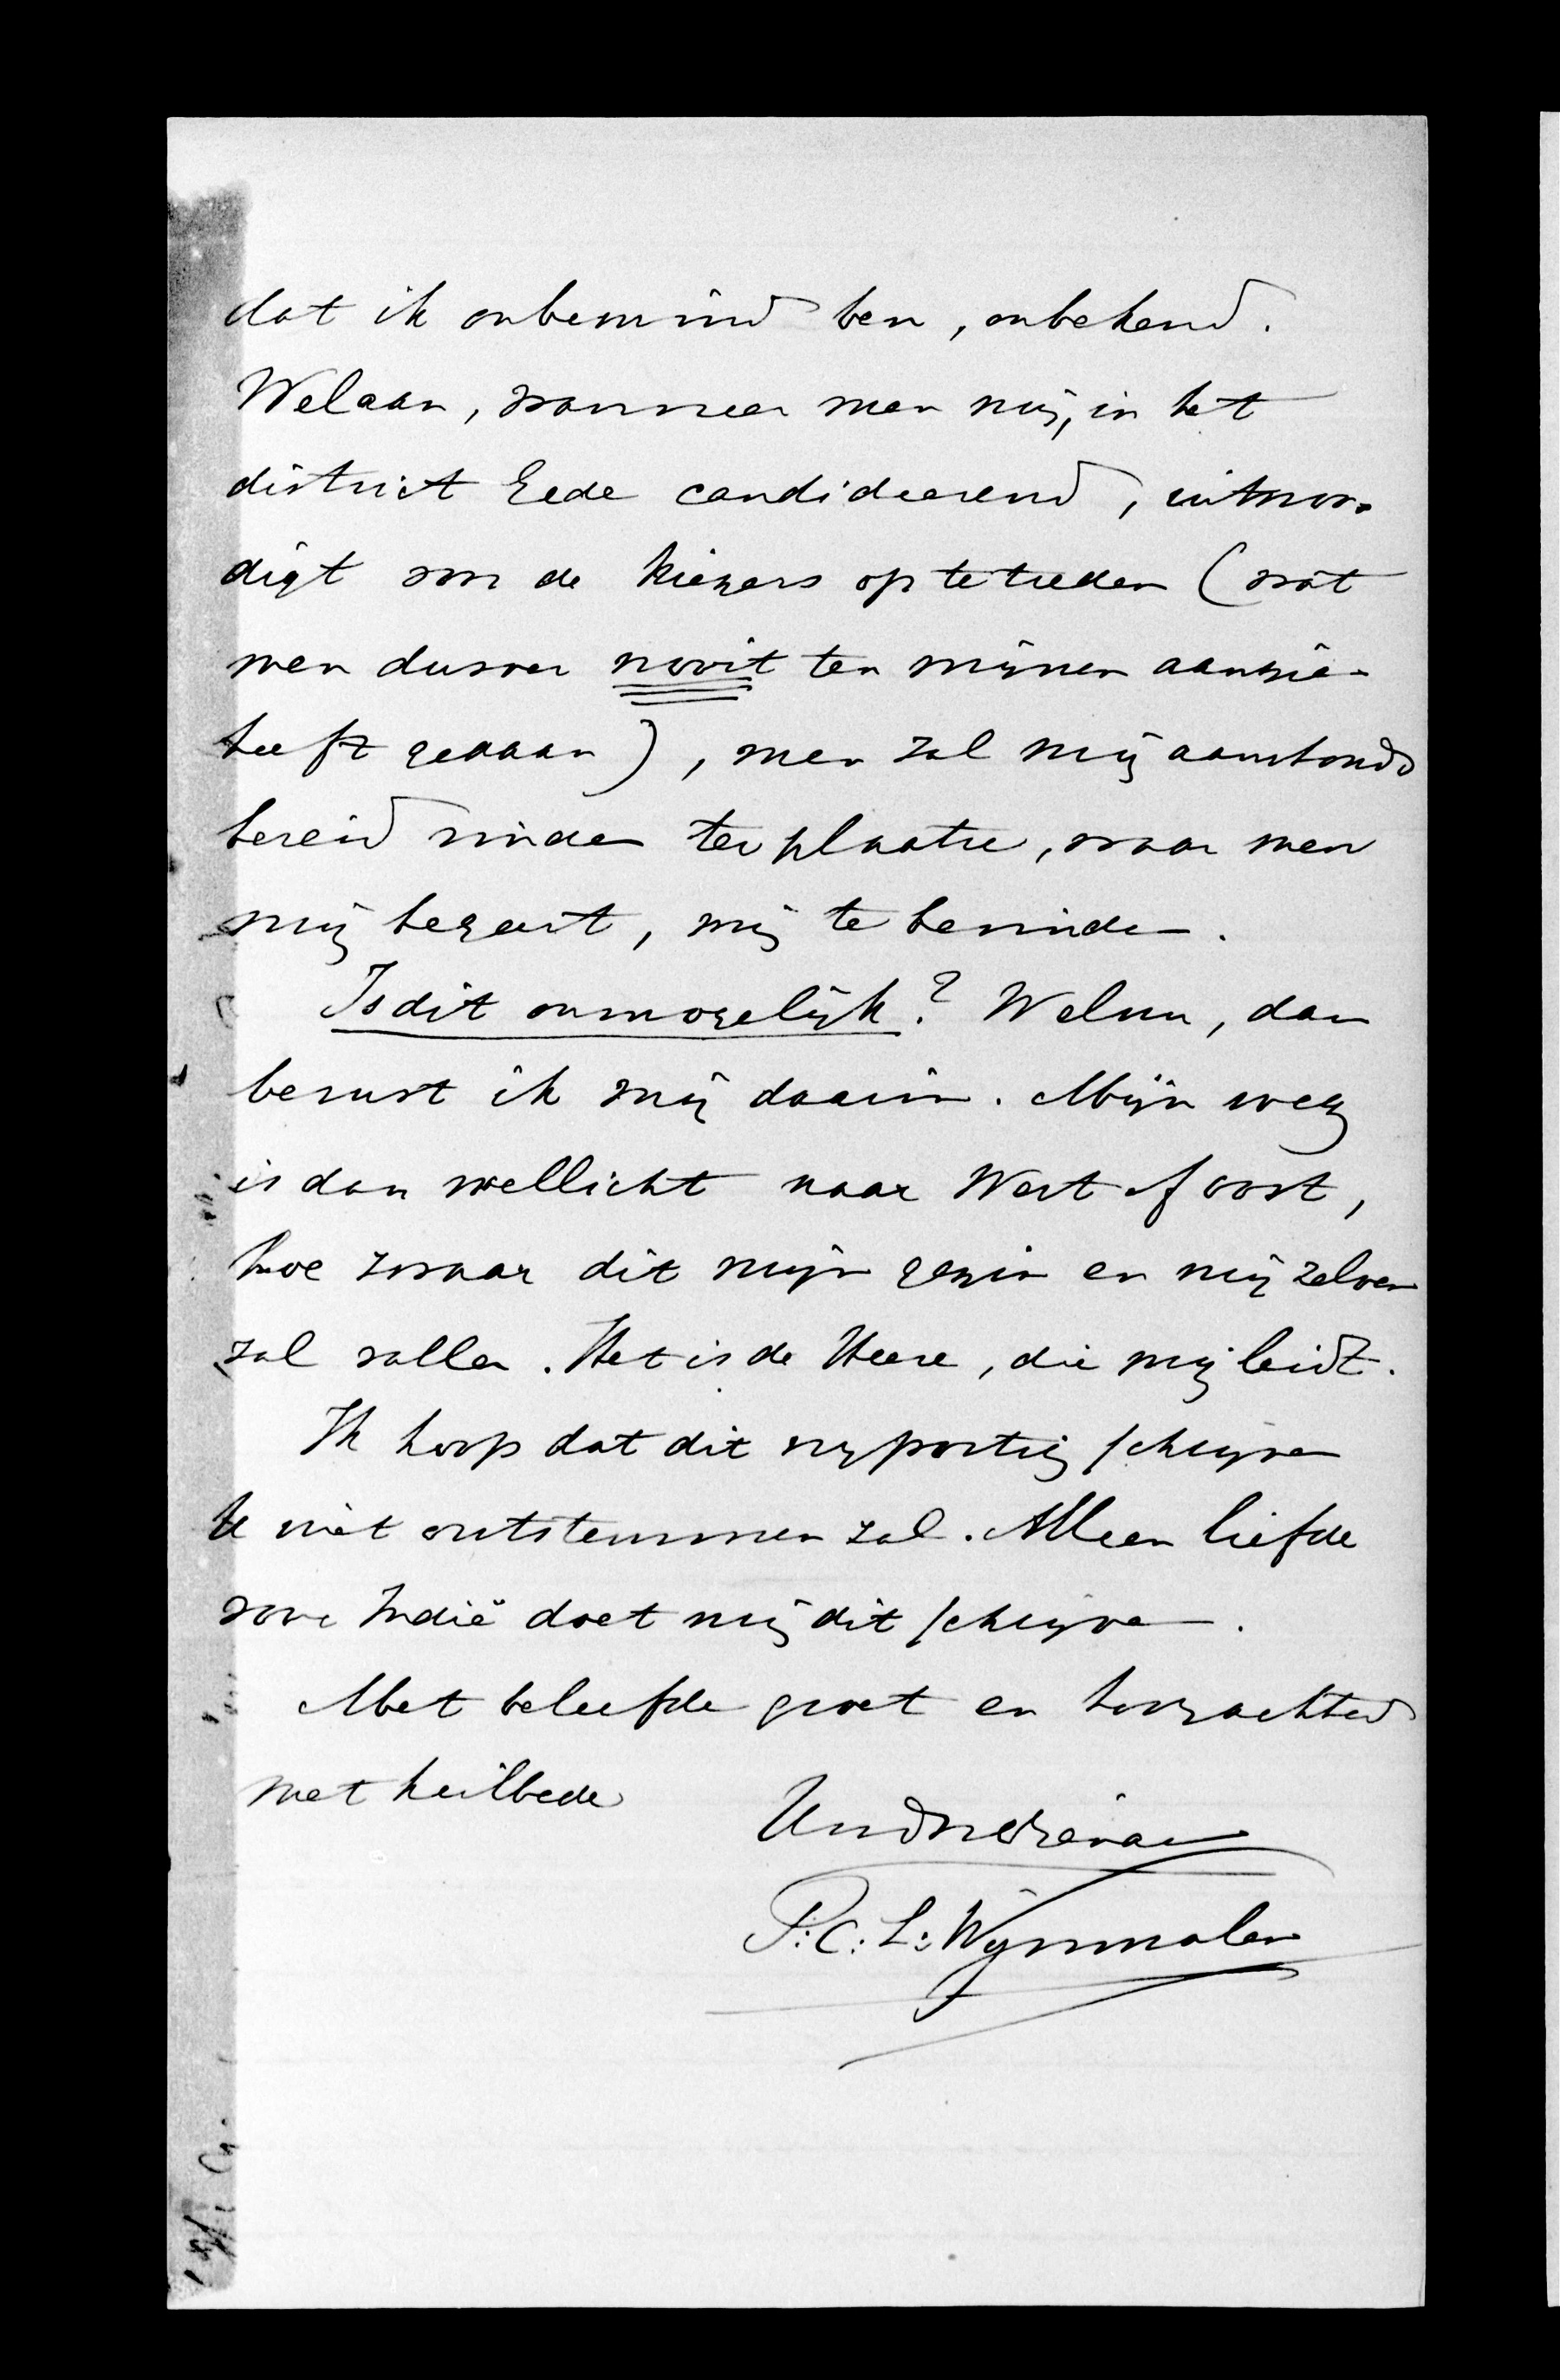 dat ik onbemind ben, onbekend.
Welaan, wanneer men mij, in het
district Ede candideerend, uitnoo-
digt voor de kiezers op te treden (wat
men dusver nooit ten mijnen aanzie-
heeft gedaan), men zal mij aanstonds
bereid vinden ter plaatse, waar men
mij begeert, mij te bevinden.
Is dit onmogelijk? Welnu, dan
berust ik mij daarin. Mijn weg
is dan wellicht naar West of Oost,
hoe zwaar dit mijn gezin en mij zelven
zal vallen. Het is de Heere, die mij leidt.
Ik hoop dat dit vrypostig schrijven
U niet ontstemmen zal. Alleen liefde
voor Indië doet mij dit schrijven.
Met beleefde groet en hoogachtend
met heilbede
Uw dw dienaar
P: C: L: Wijnmalen